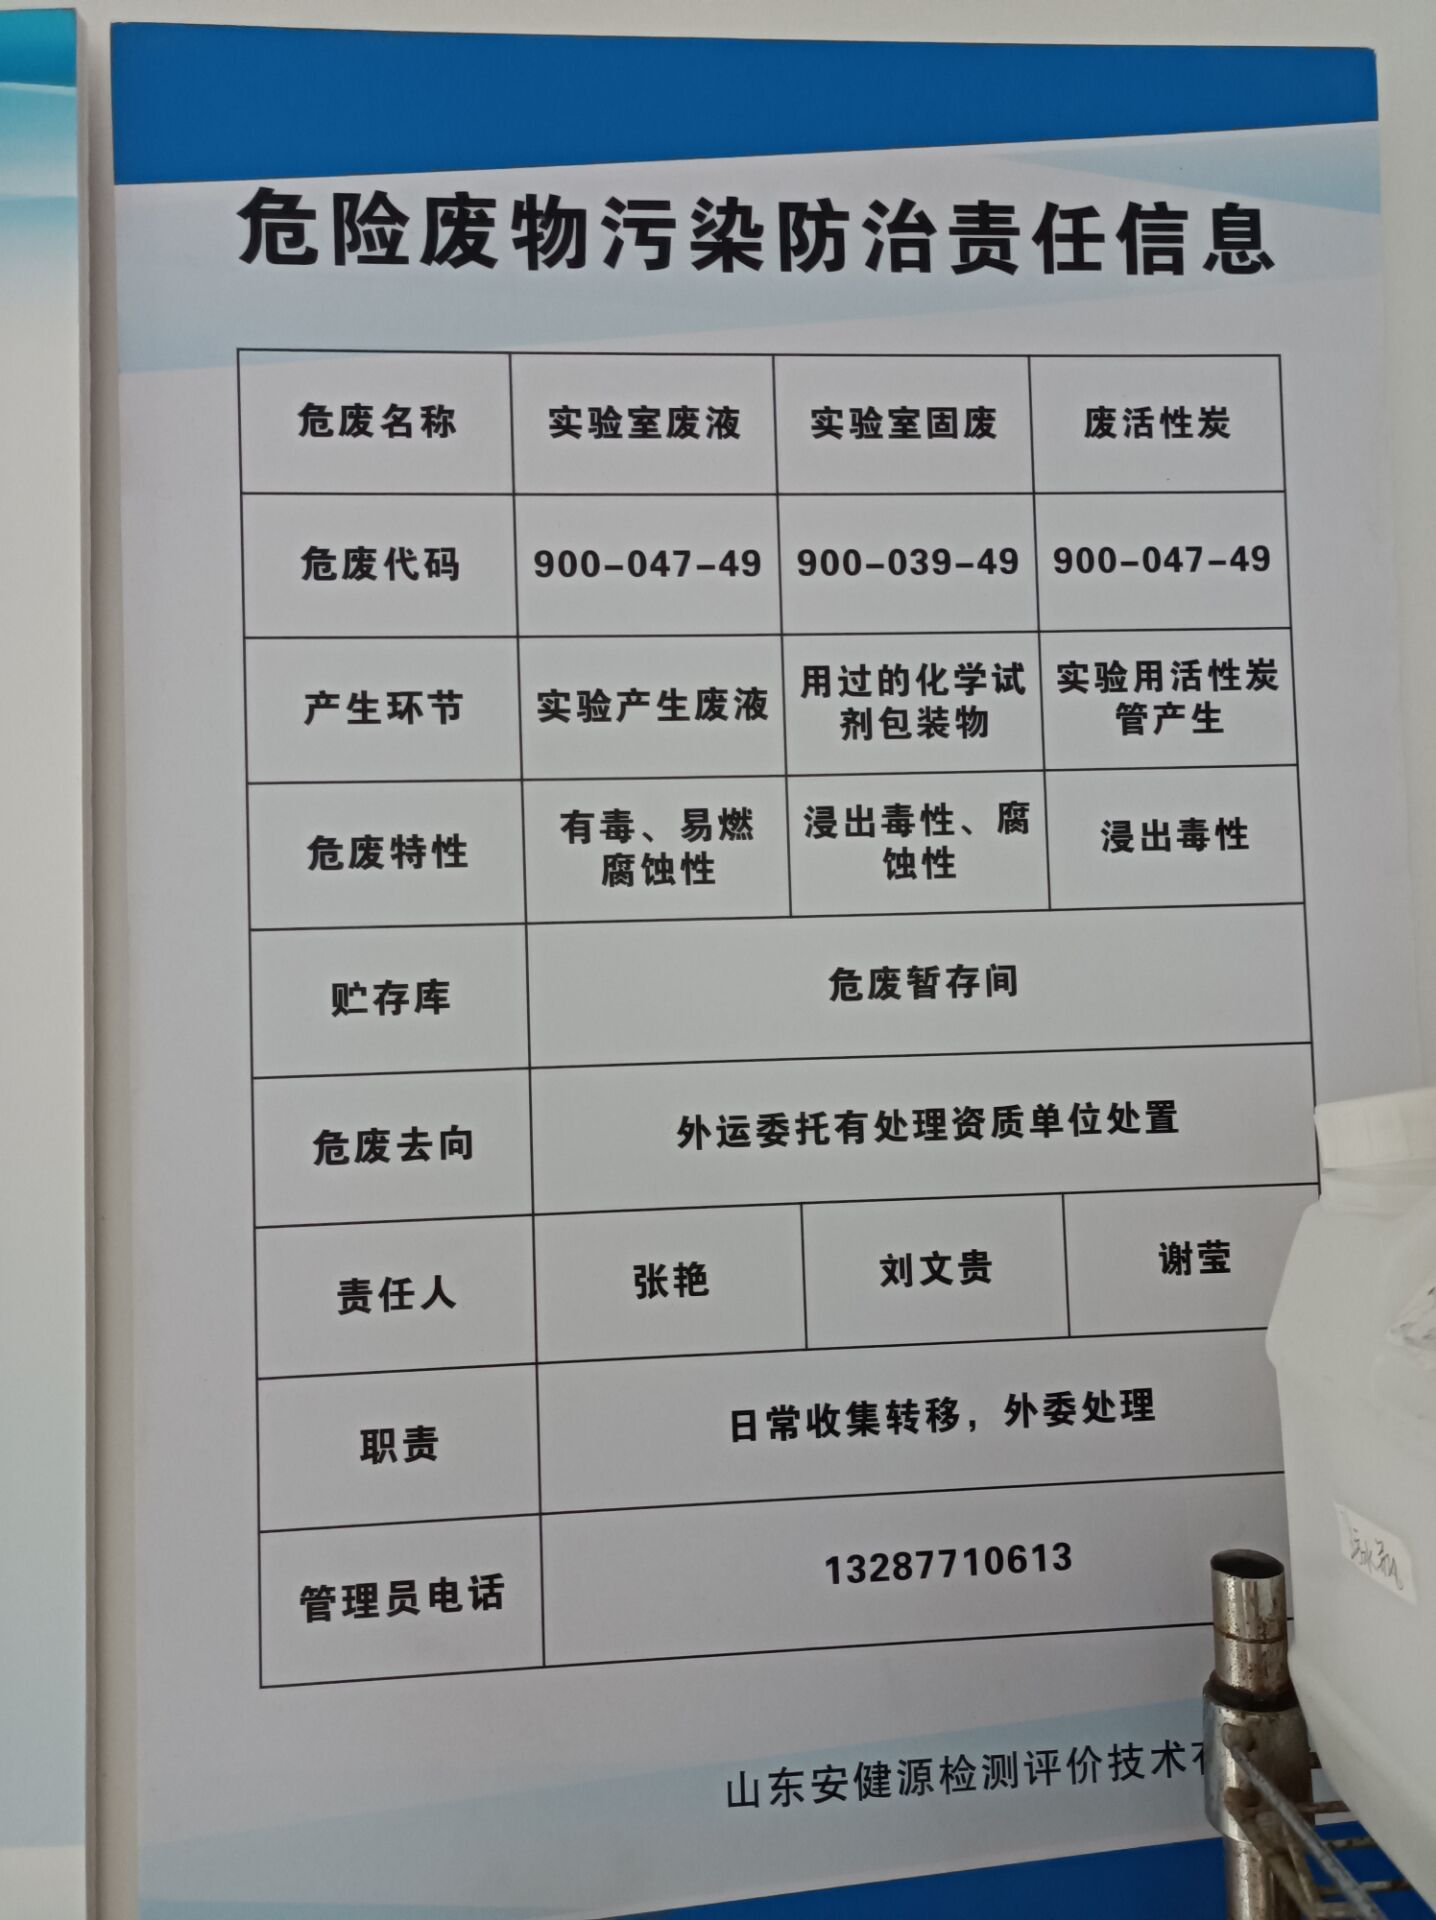 危险废物污染防治责任信息
危废名称 实验室废液 实验室固废 废活性炭
危废代码 900-047-49 900-039-49 900-047-49
产生环节 实验产生废液 用过的化学试 实验用活性炭
剂包装物 管产生
危废特性 有毒、易燃 浸出毒性、腐 浸出毒性
腐蚀性 蚀性
贮存库 危废暂存间
危废去向 外运委托有处理资质单位处置
责任人 张艳 刘文贵 谢莹
职责 日常收集转移，外委处理
管理员电话 13287710613
山东安健源检测评价技术有